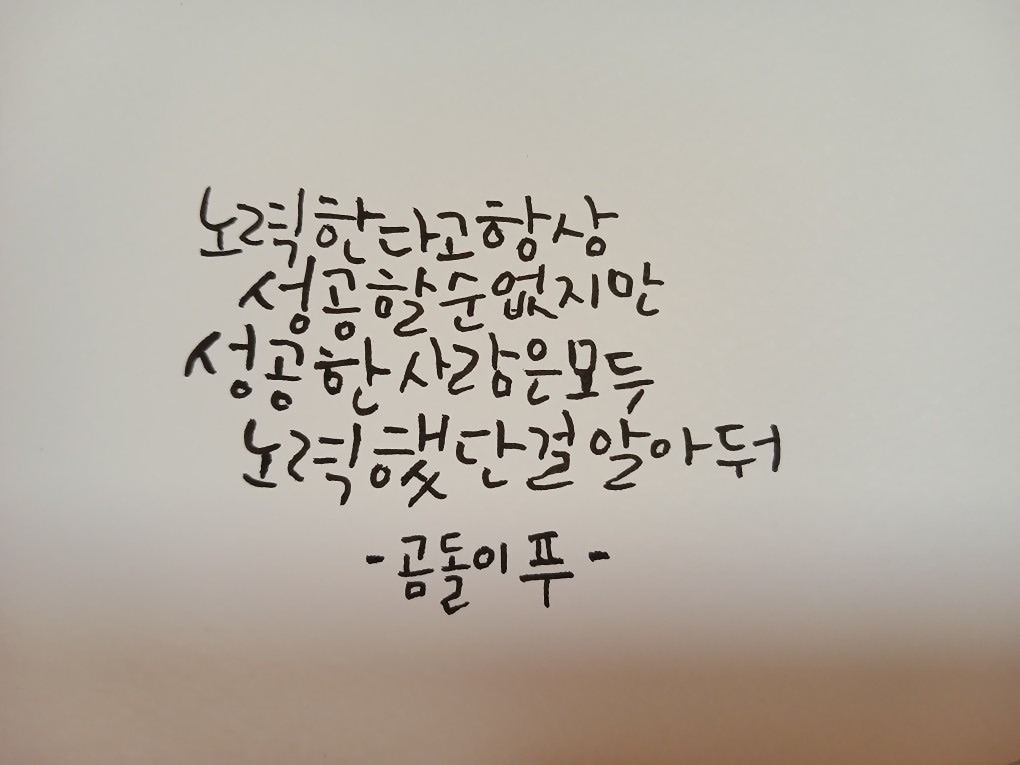 노력한다고항상
성공할순없지만
성공한사람은모두
노력했단걸알아둬
-곰돌이푸-